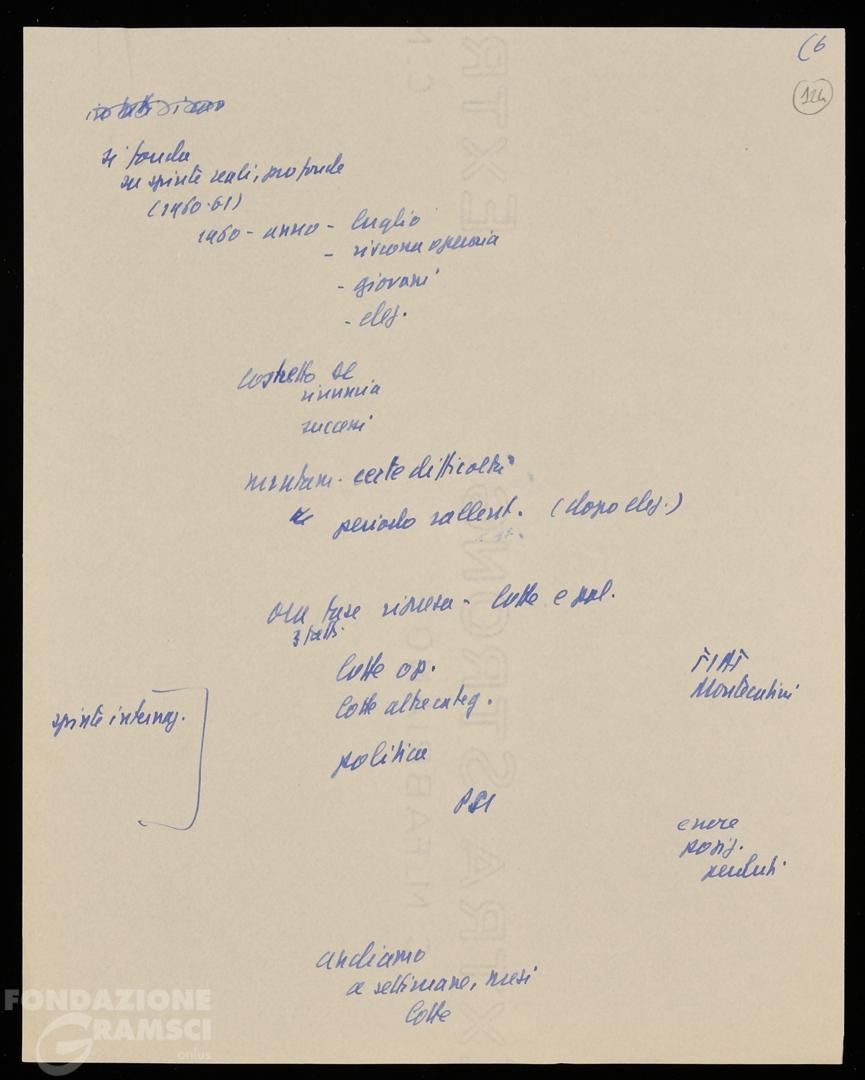 (6
124
si fonda
su spinte reali, profonde
(1960-61)
1960 - anno - luglio
- riscossa operaia
- giovani
- elez.
costretto DC
rinuncia
successi
certe difficoltà
periodo rallent. (dopo elez.)
Ora fase ripresa - lotte e pol.
3 fatti
lotte op.
FIAT
Montecatini
lotte altre categ.
spinte internaz.
politica
PSI
posiz.
perduti
andiamo
a settimane, mesi
lotte
FONDAZIONE
GRAMSCI
onlus